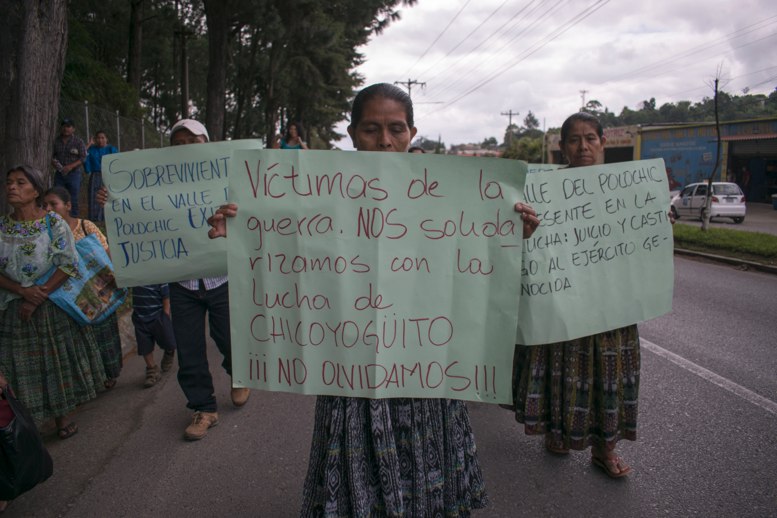 SOBREVIVIENT
EN EL VALLE
POLOCHIC EX
JUSTICIA
Víctimas de la
guerra. NOS solida
rizamos con la
lucha de
CHICOYOGÜITO
¡¡¡ NO OLVIDAMOS!!!
DEL POLOCHIC
ESENTE EN LA
UCHA: JUICIO Y CASTI
AL EJÉRCITO GE-
NOCIDA